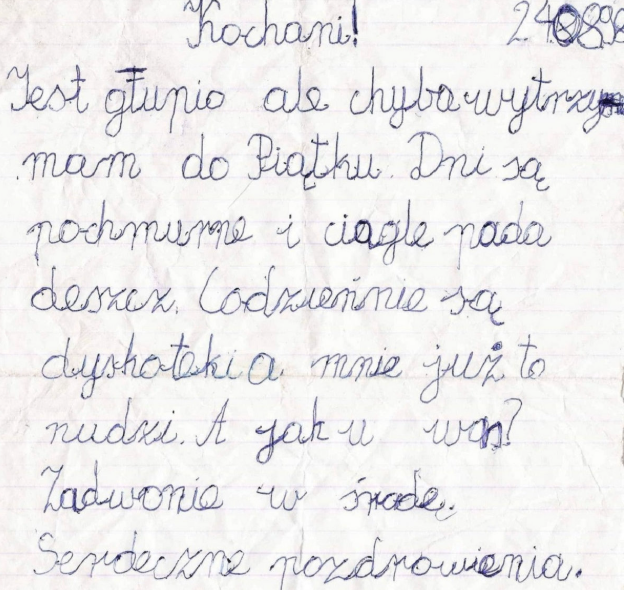 Kochani! 240898
Jest głupio ale chyba wytrzy
mam do Piątku. Dni są
pochmurne i ciągle pada
deszcz. Codzieńnie są
dyskoteki a mnie już to
nudzi. A jak u was?
Zadwonie w środę.
Serdeczne pozdrowienia.